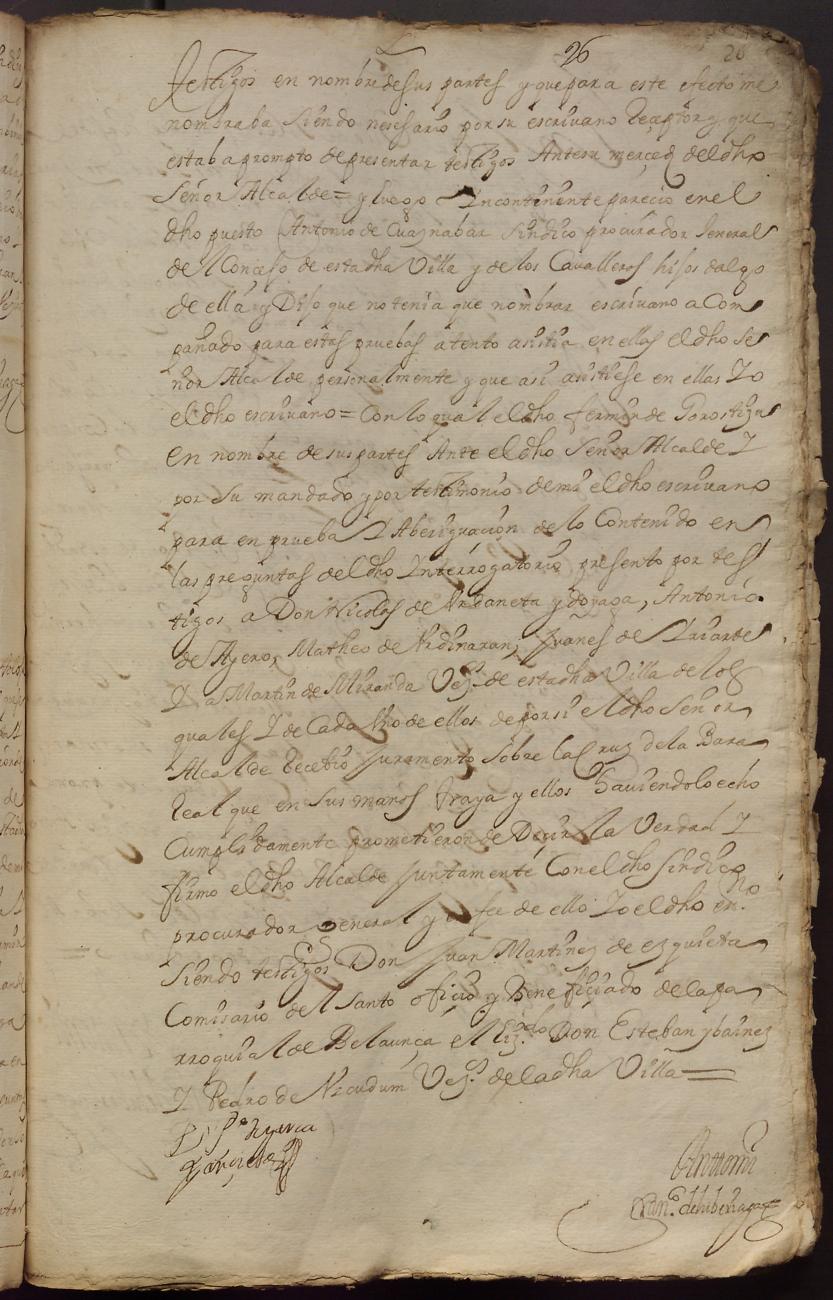 26 26
testigos en nombre de sus partes y que para este efecto me
nombraba siendo nesesario por su escrivano Reçeptor y que
estaba prompto de presentar testigos Ante su merçed del dho
Señor Alcalde = y luego Incontinente pareçio en el
dho puesto Antonio de Cuaznabar sindico procurador General
del Conçejo de esta dha Villa y de los Cavalleros hijos dalgo
de ella y Dijo que no tenia que nombrar escrivano aCom
pañado para estas pruebas atento asistia en ellas el dho se
ñor Alcalde personalmente y que asi asistiese en ellas Yo
el dho escrivano = Con lo qual el dho fermin de Gorostizu
en nombre de sus partes Ante el dho Señor Alcalde Y
por su mandado y por testimonio de mi el dho escrivano
para en prueba Y Aberiguaçion de lo Contenido en
las preguntas del dho Interrogatorio presento por tes
tigos a Don Nicolas de Urdaneta y doyaga, Antonio
de Agero, Matheo de Urdinaran, Juanes de Yriarte
Y a Martin de Miranda Vezs. de esta dha Villa de los
quales Y de Cada Uno de ellos de por si el dho Señor
Alcalde Reçebio Juramento sobre la Cruz de la Bara
Real que en sus manos traya y ellos haviendolo echo
Cumplidamente prometieron de Deçir la Verdad Y
firmo el dho Alcalde Juntamente Con el dho sindico
procurador General y en fee de ello Yo el dho enno.
siendo testigos Don Juan Martinez de ezquieta
Comisario del santo ofiçio y Benefiçiado de la pa
rroquial de Belaunça el Lizdo. Don Esteban ybañez
Y Pedro de Vicudum Vezs. de la dha Villa
Antonio